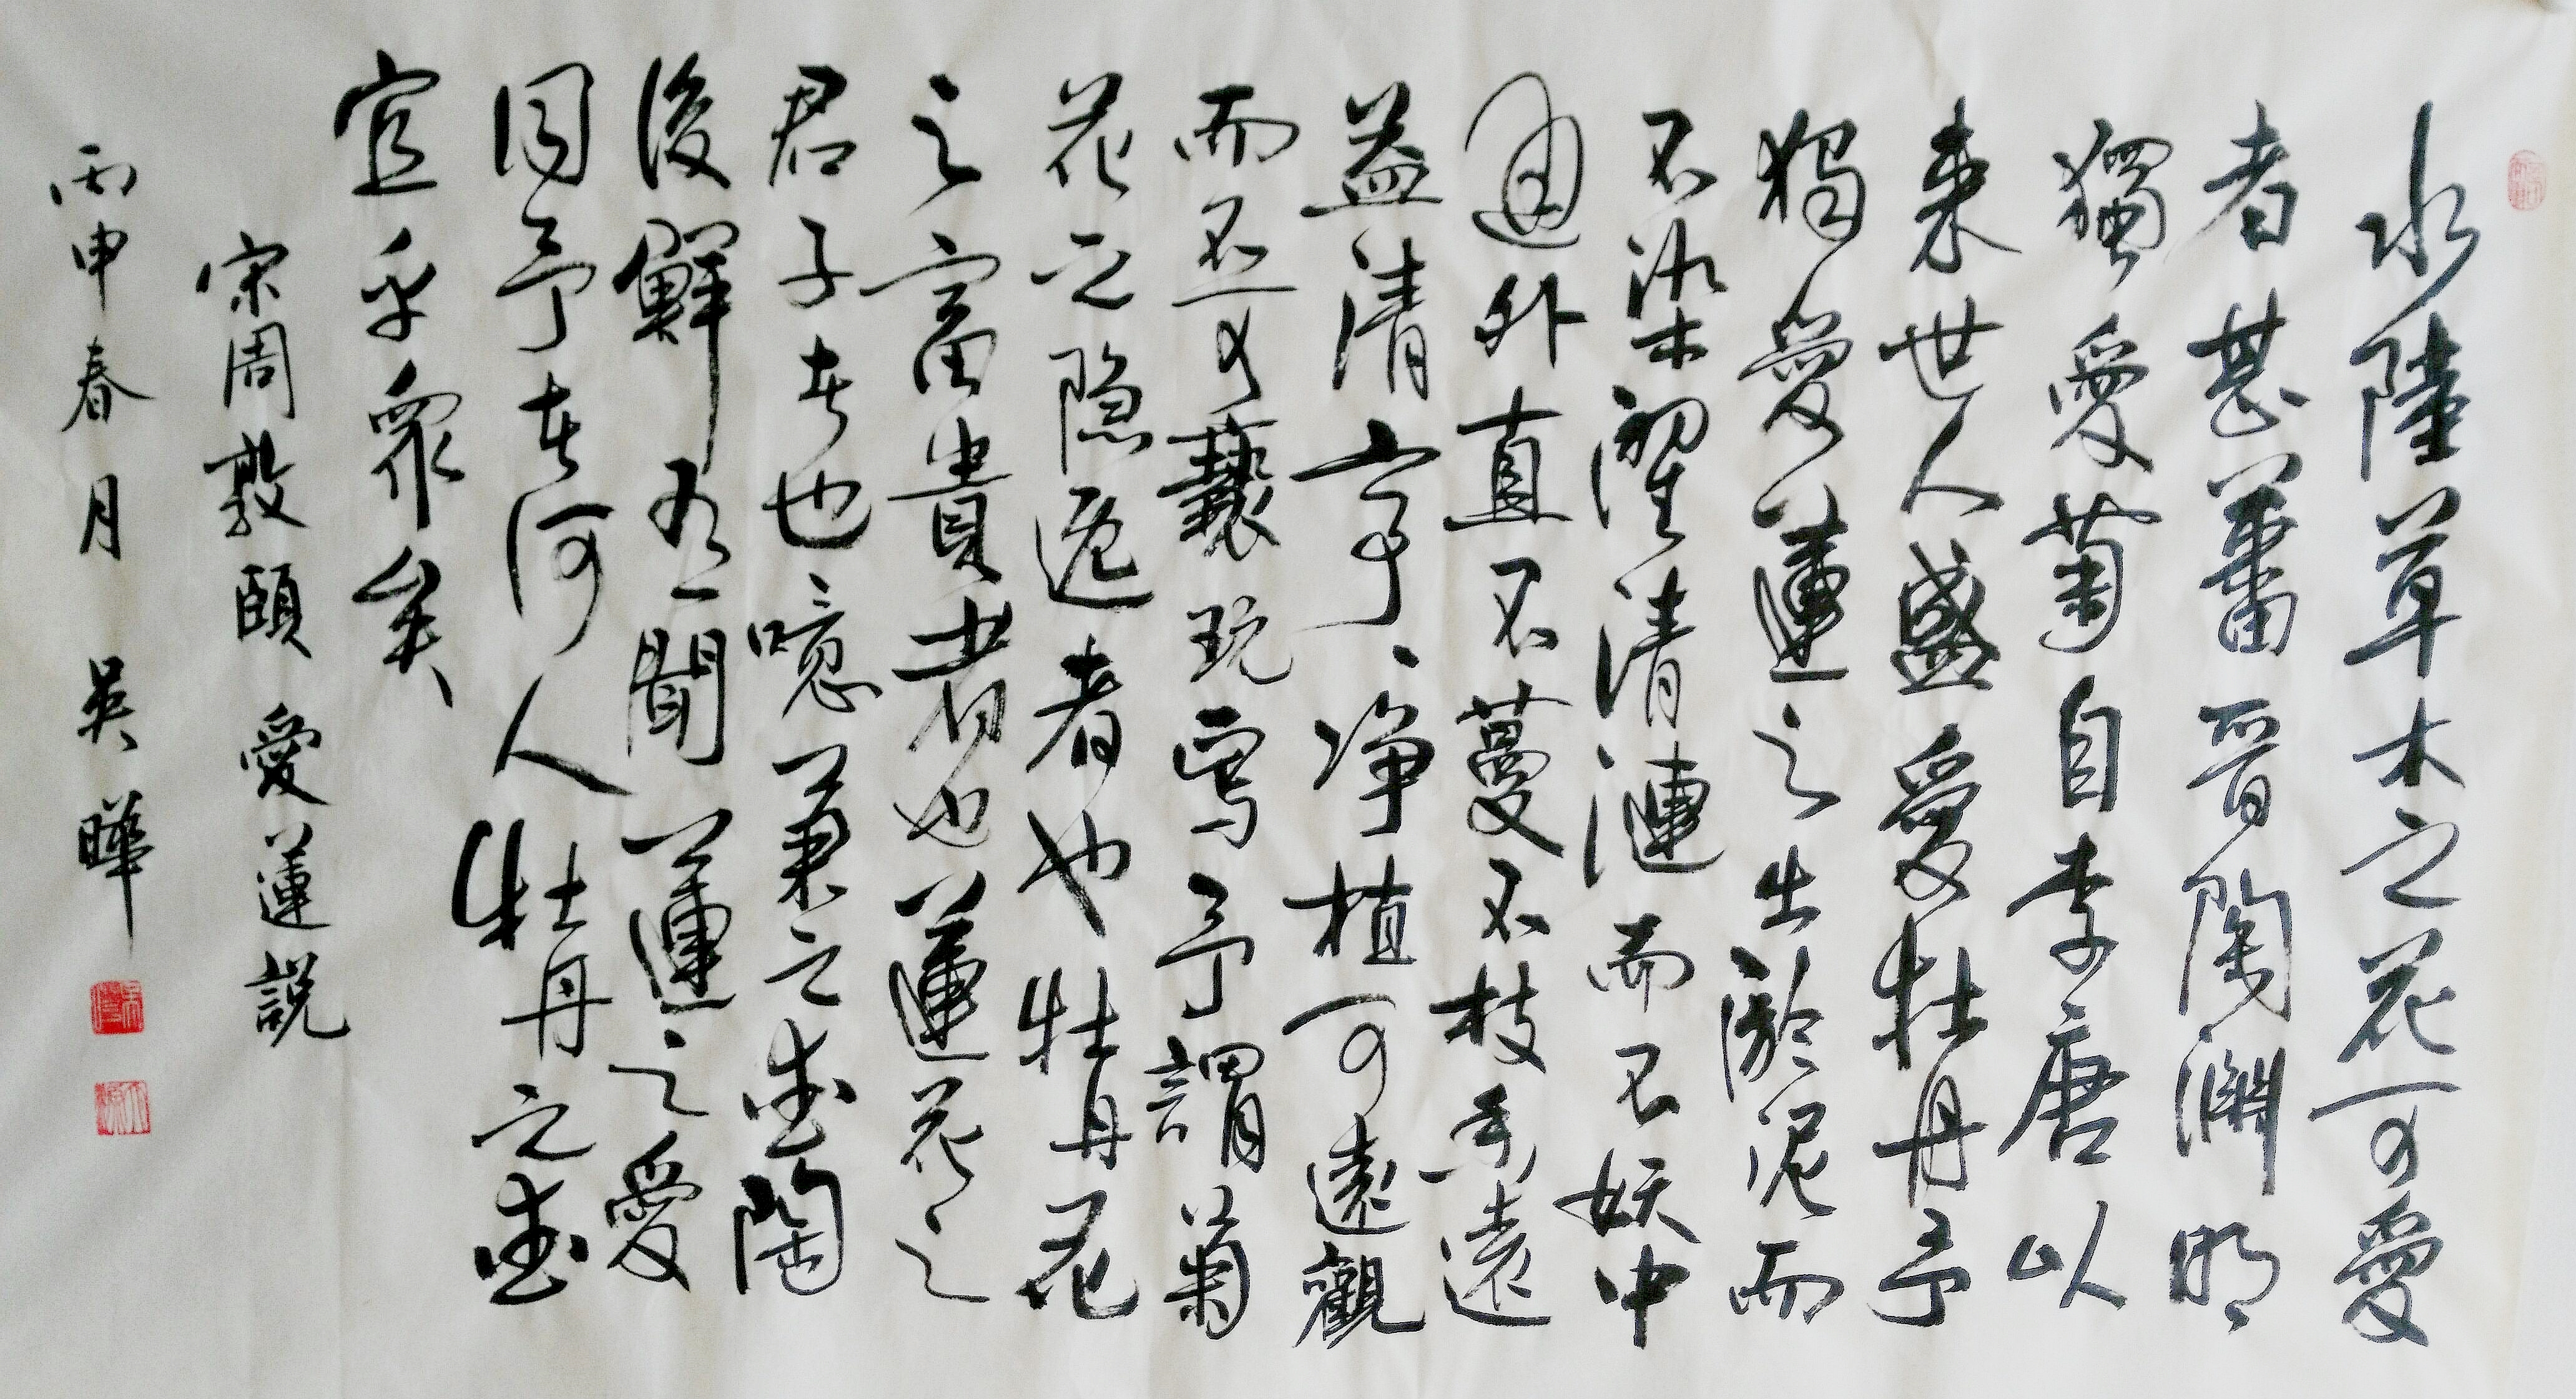 水陸草木之花可愛
者甚蕃晉陶淵明
獨愛菊自李唐以
來世人盛愛牡丹予
獨愛蓮之出淤泥而
不染濯清漣而不妖中
通外直不蔓不枝香遠
益清亭、净植可遠觀
而不可褻玩焉予謂菊
花之隱逸者也牡丹花
之富貴者也蓮花之
君子者也噫菊之愛陶
後鮮有聞蓮之愛
同予者何人牡丹之愛
宜乎衆矣
宋周敦頤 愛蓮説
丙申春月 吳曄